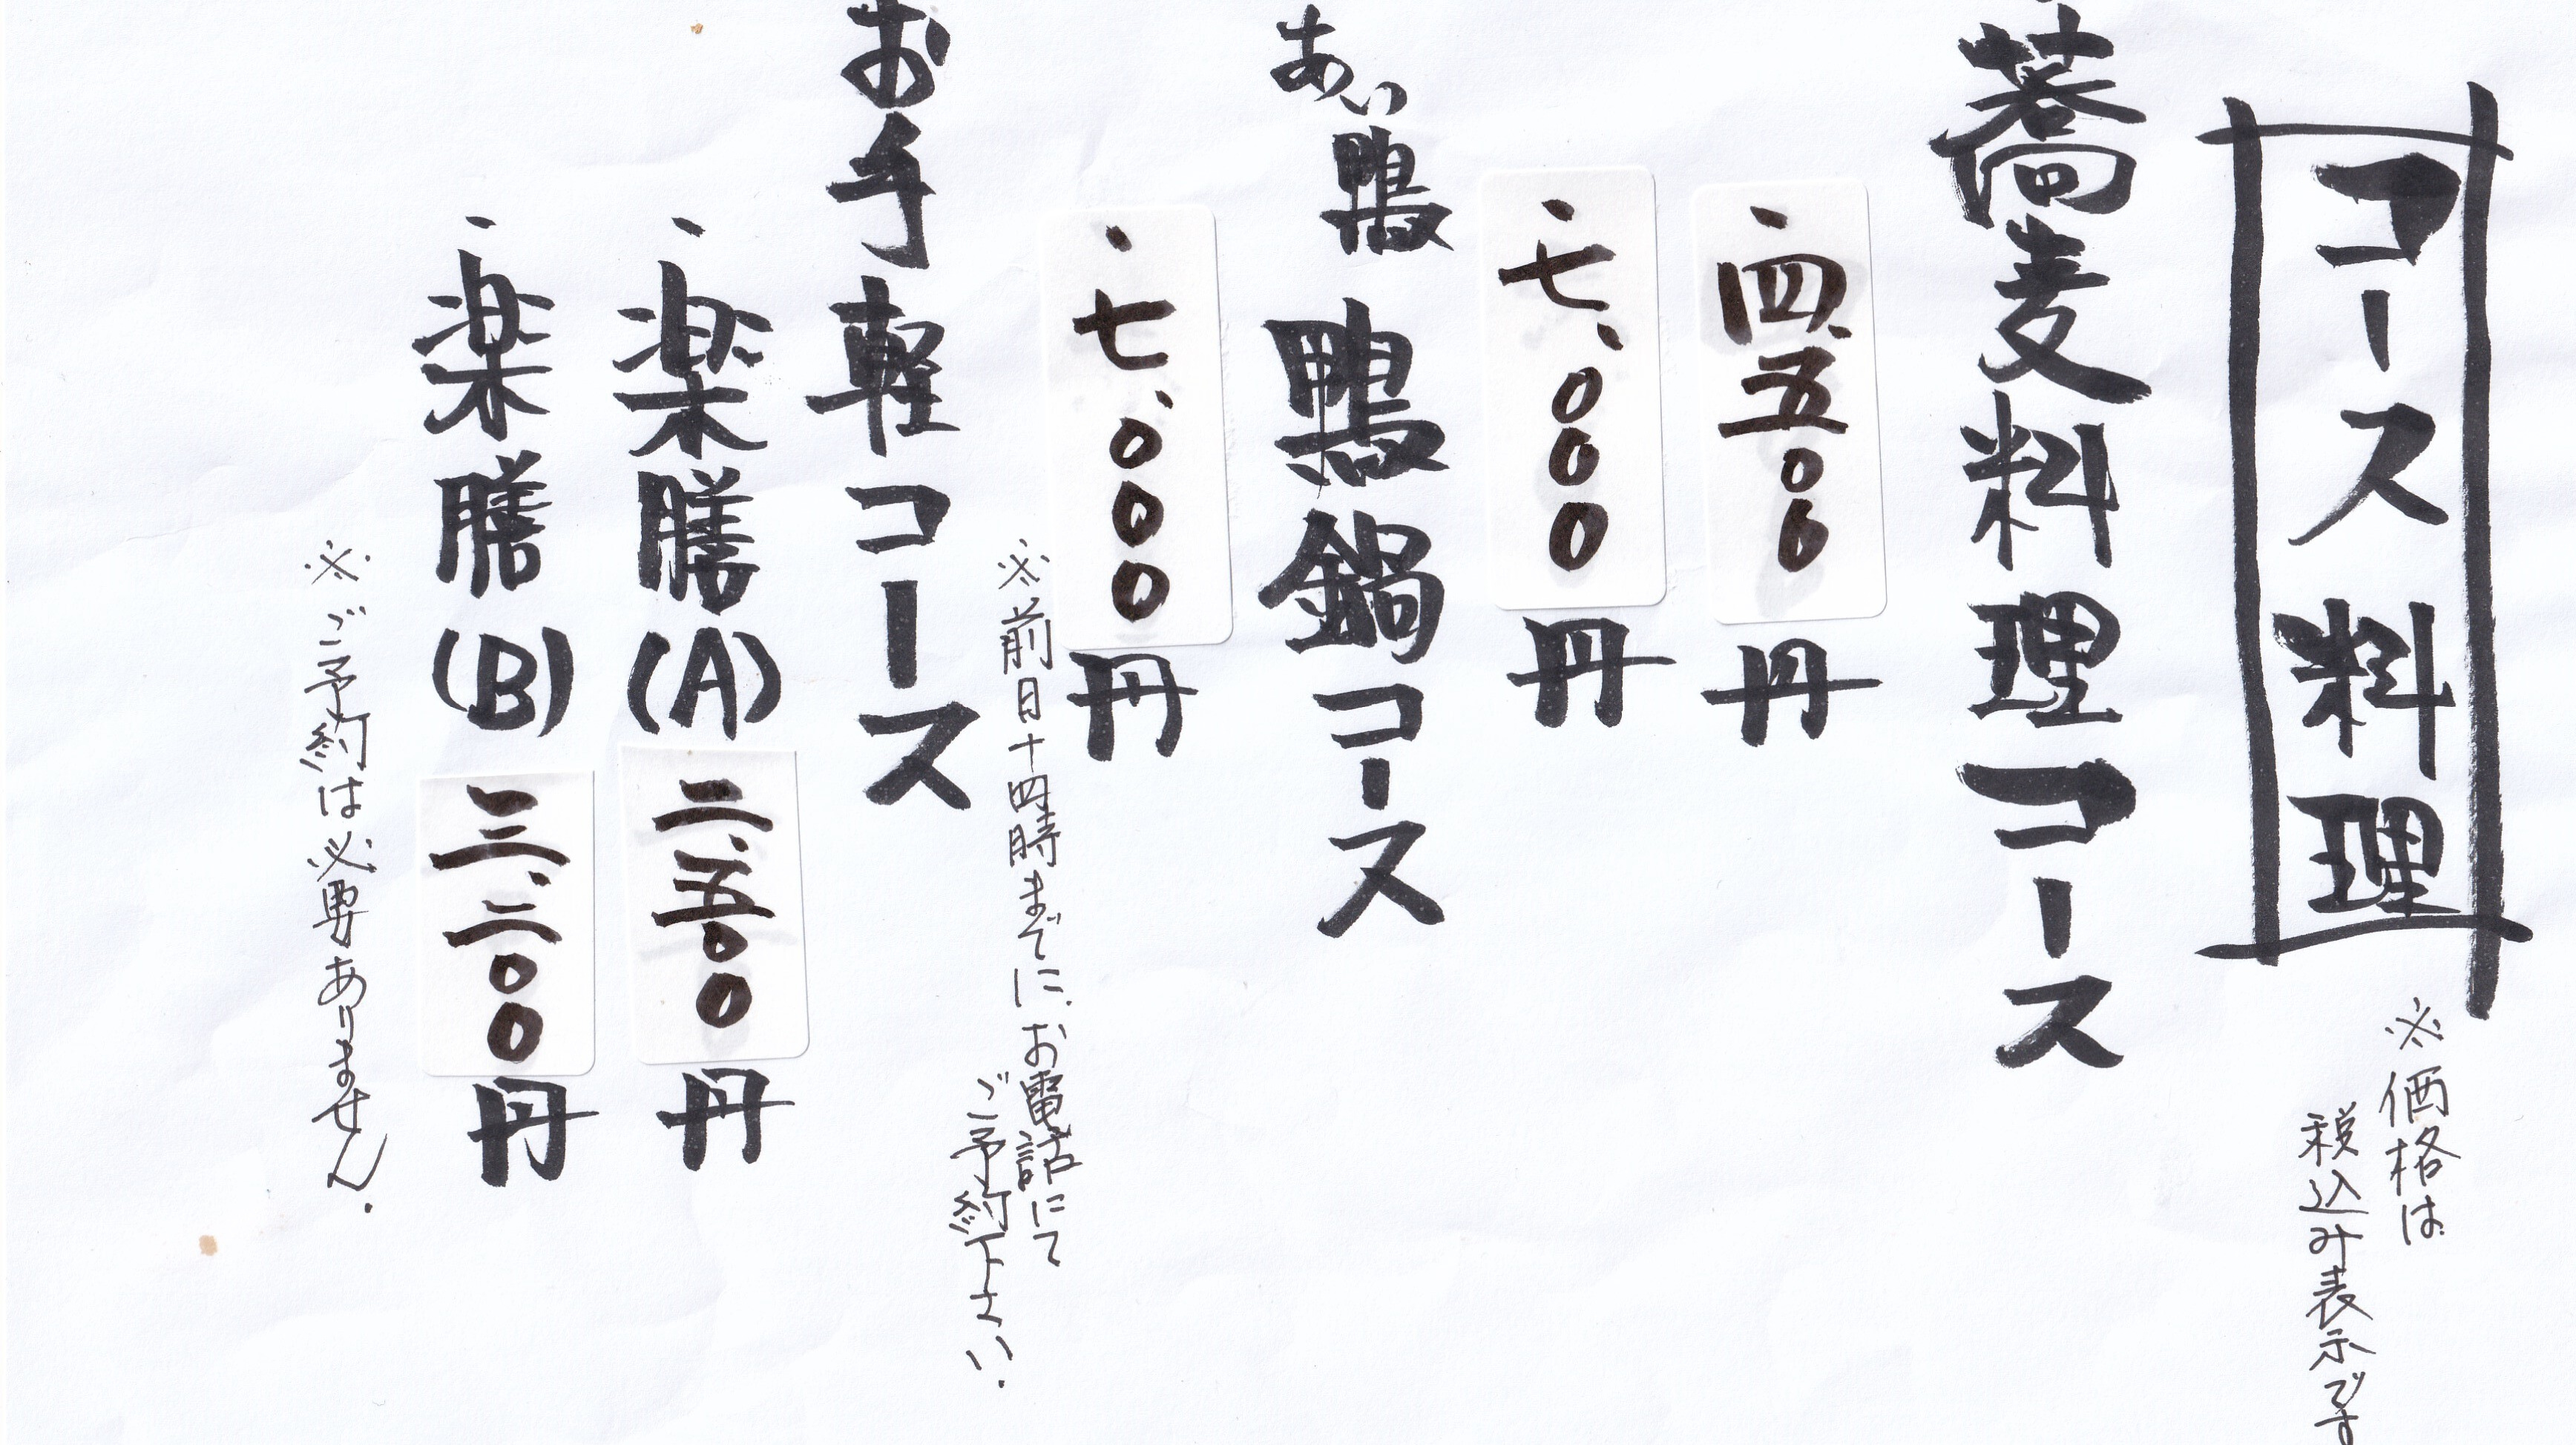 コース料理
※価格は
税込み表示です
蕎麦料理コース
、四、五〇〇円
、七、〇〇〇円
あい鴨 鴨鍋コース
、七、〇〇〇円
※前日十四時までに、お電話にて
ご予約下さい.
お手軽コース
、楽膳(A)二、五〇〇円
、楽膳(B)三、二〇〇円
※ご予約は必要ありません.